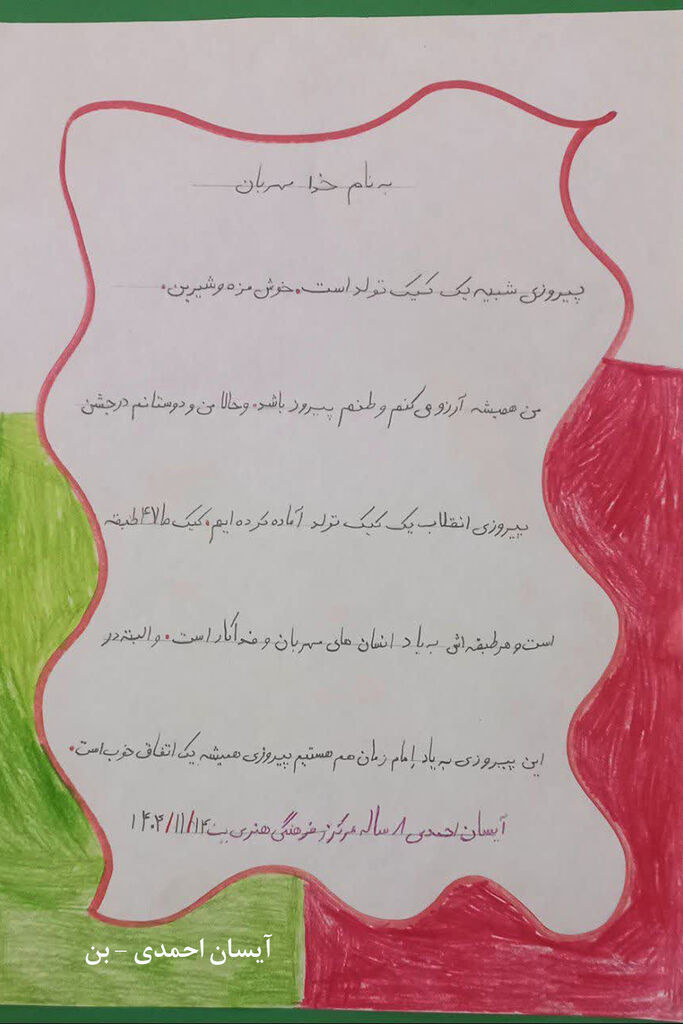 به نام خدا مهربان
پیروزی شبیه یک کیک تولد است. خوش مزه و شیرین.
من همیشه آرزو می کنم وطنم پیروز باشد. و حالا من و دوستانم در جشن
پیروزی انقلاب یک کیک تولد آماده کرده ایم. کیک ما ۴۷ طبقه
است و هر طبقه اش به یاد انسان های مهربان و فداکار است. و البته در
این پیروزی به یاد امام زمان هم هستیم پیروزی همیشه یک اتفاق خوب است.
آیسان احمدی ۸ ساله مرکز فرهنگی هنری بن ۱۴۰۴/۱۱/۱۴
آیسان احمدی – بن